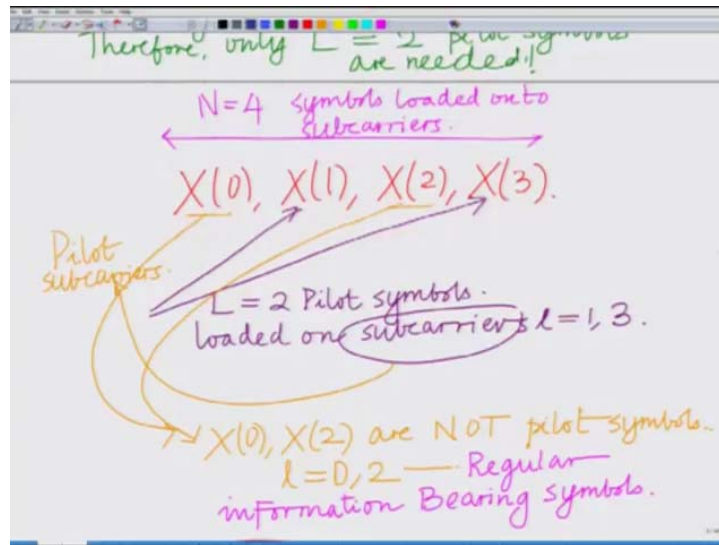 Therefore, only L = 2 pilot symbols
are needed!
N=4 symbols loaded onto
subcarriers.
X(0), X(1), X(2), X(3).
Pilot
subcarriers.
L = 2 Pilot symbols.
loaded on subcarriers l=1,3.
X(0), X(2) are NOT pilot symbols.
l=0,2 — Regular
information Bearing symbols.